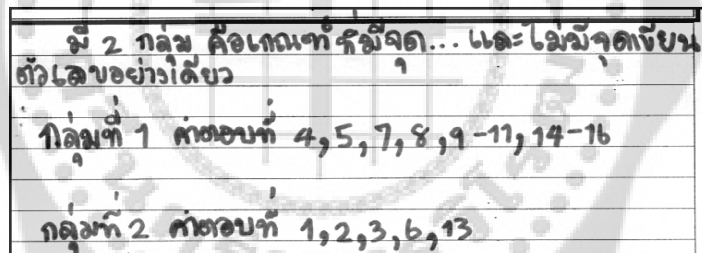 มี 2 กลุ่ม คือเกณฑ์ที่มีจุด... และไม่มีจุดเขียน
ตัวเลขอย่างเดียว
กลุ่มที่ 1 คำตอบที่ 4,5,7,8,9-11,14-16
กลุ่มที่ 2 คำตอบที่ 1,2,3,6,13